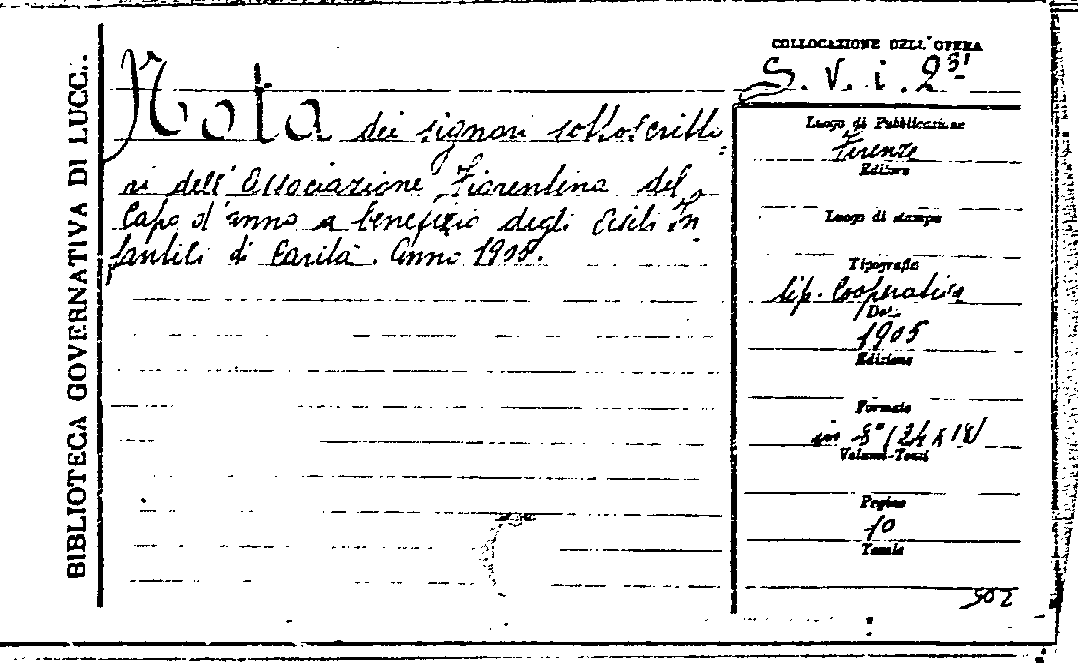 BIBLIOTECA GOVERNATIVA DI LUCC..
Nota dei signori sottoscritto=
ri dell'Associazione Fiorentina del
Capo d'anno a benefizio degli Asili In=
fantili di Carità. Anno 1905.
COLLOCAZIONE DELL'OPERA
S. V. i. 2
Luogo di Pubblicazione
Firenze
Editore
Luogo di stampa
Tipografia
tip. Cooperativa
Data
1905
Edizione
Formato
in 8° (24 x 18)
Volumi-Tomi
Pagine
10
Tavole
502